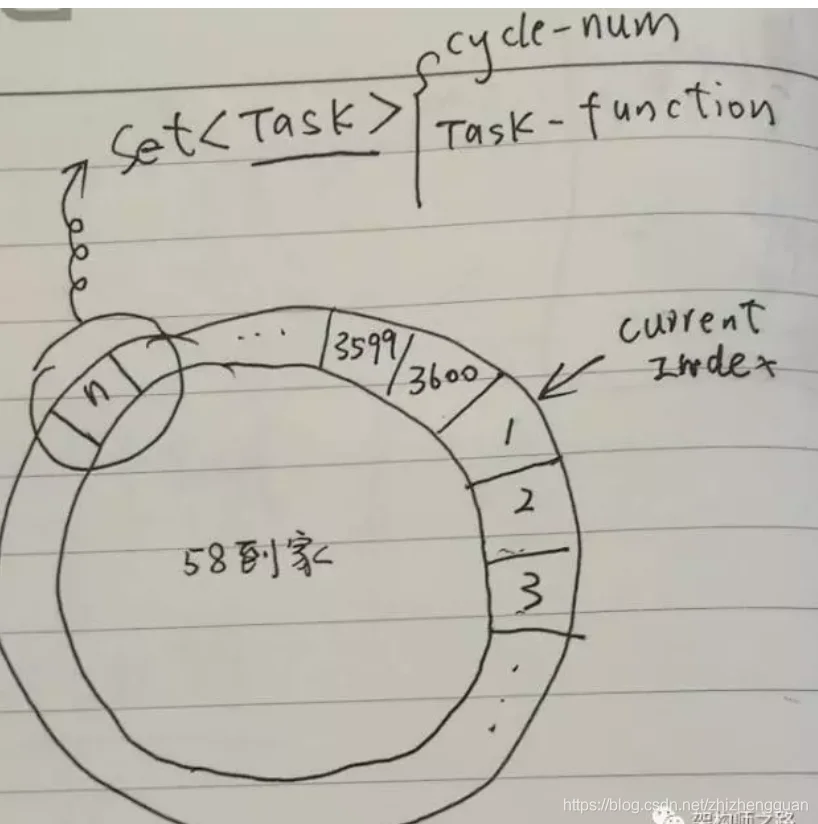 cycle-num
Set<Task>
Task-function
current
Index
...
3599
3600
1
n
2
58到家
3
https://blog.csdn.net/zhizhengquan
架构师之路